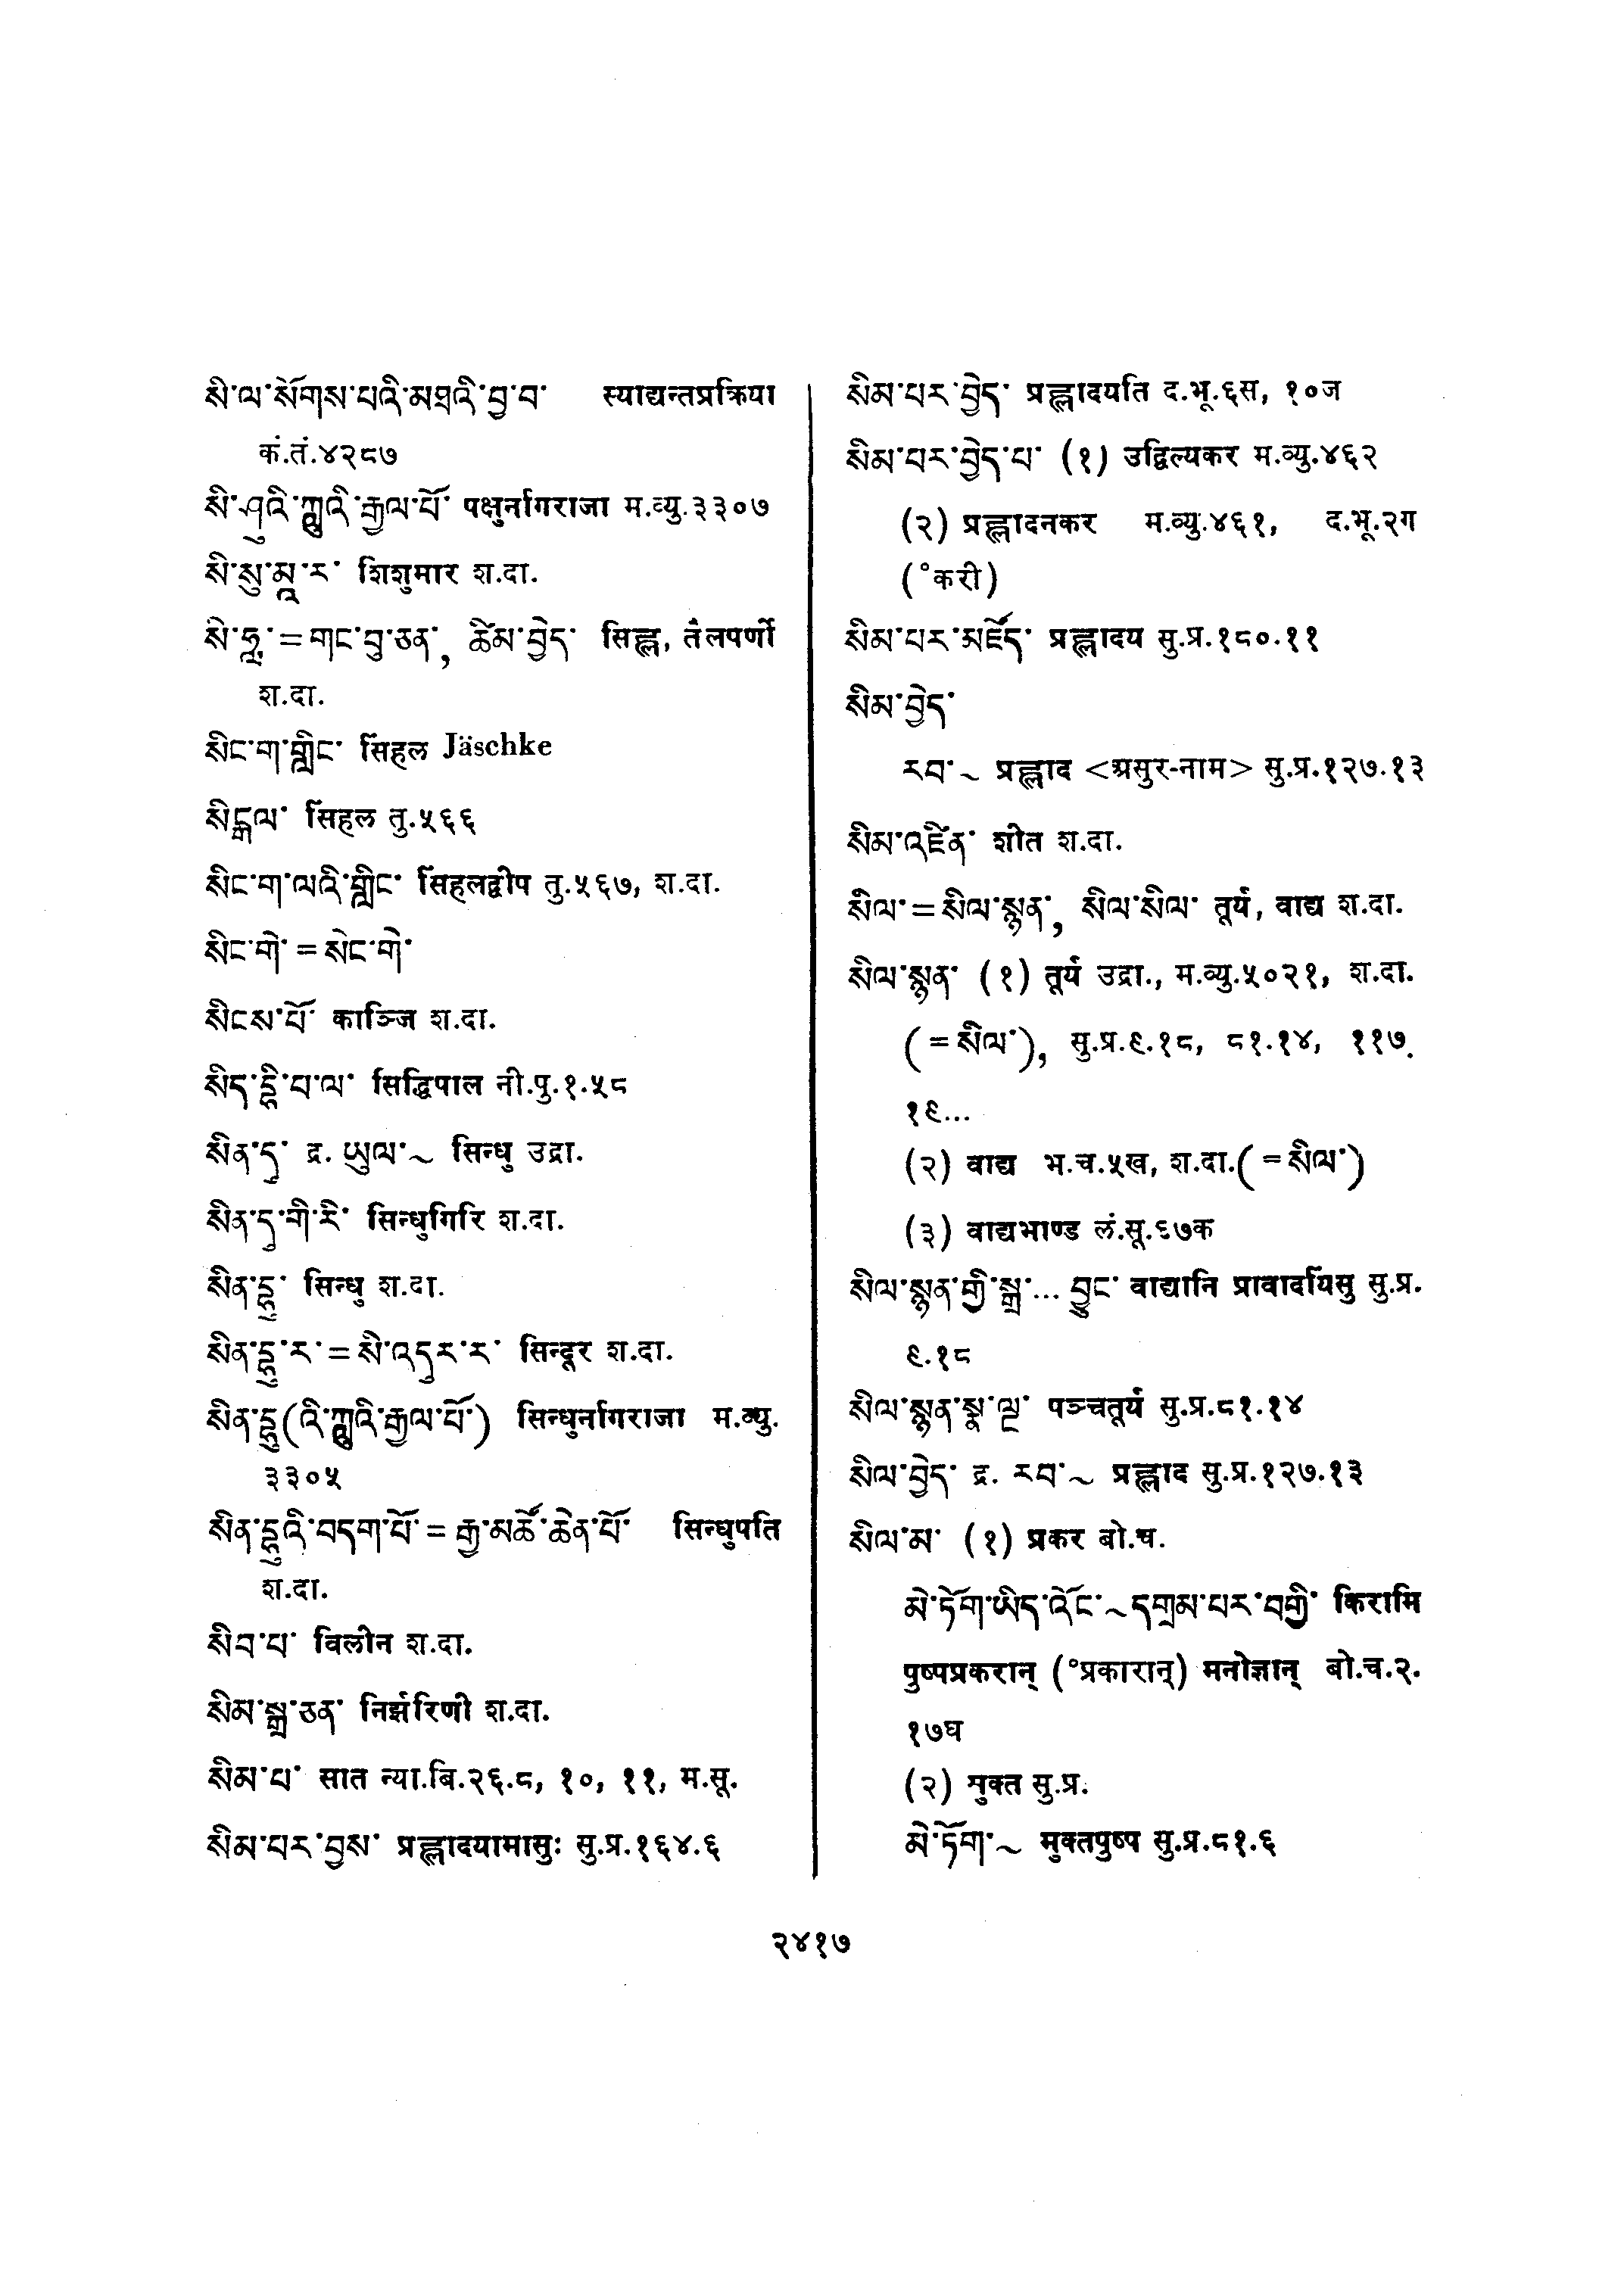 སི་ལ་སོགས་པའི་མཐའི་བྱ་བ་ स्याद्यन्तप्रक्रिया
कं.तं.४२८७
སི་ཤུའི་ཀླུའི་རྒྱལ་པོ་ पक्षुर्नागराजा म.व्यु.३३०७
སི་སུ་མཱ་ར་ शिशुमार श.दा.
སི་ཧླ་=གང་བུ་ཅན་, ཚིམ་བྱེད་ सिह्ल, तैलपर्णी
श.दा.
སིང་ག་གླིང་ सिंहल Jäschke
སིངྒལ་ सिंहल तु.५६६
སིང་ག་ལའི་གླིང་ सिंहलद्वीप तु.५६७, श.दा.
སིང་གེ་ = སེང་གེ་
སིངས་པོ་ काञ्जि श.दा.
སིད་དྷི་པ་ལ་ सिद्धिपाल नी.पु.१.५८
སིན་དུ་ द्र. ཡུལ་~ सिन्धु उद्रा.
སིན་དུ་གི་རི་ सिन्धुगिरि श.दा.
སིན་དྷུ་ सिन्धु श.दा.
སིན་དྷུ་ར་=སི་འདུར་ར་ सिन्दूर श.दा.
སིན་དྷུ(འི་ཀླུའི་རྒྱལ་པོ་) सिन्धुर्नागराजा म.व्यु.
३३०५
སིན་དྷུའི་བདག་པོ་ = རྒྱ་མཚོ་ཆེན་པོ་ सिन्धुपति
श.दा.
སིབ་པ་ विलीन श.दा.
སིམ་སྒྲ་ཅན་ निर्झरिणी श.दा.
སིམ་པ་ सात न्या.बि.२६.८, १०, ११, म.सू.
སིམ་པར་བྱས་ प्रह्लादयामासुः सु.प्र.१६४.६
སིམ་པར་བྱེད་ प्रह्लादयति द.भू.६स, १०ज
སིམ་པར་བྱེད་པ་ (१) उद्विल्यकर म.व्यु.४६२
(२) प्रह्लादनकर म.व्यु.४६१, द.भू.२ग
(°करी)
སིམ་པར་མཛོད་ प्रह्लादय सु.प्र.१८०.११
སིམ་བྱེད་
རབ་~ प्रह्लाद <असुर-नाम> सु.प्र.१२७.१३
སིམ་འཛིན་ शीत श.दा.
སིལ་=སིལ་སྙན་, སིལ་སིལ་ तूर्य, वाद्य श.दा.
སིལ་སྙན་ (१) तूर्य उद्रा., म.व्यु.५०२१, श.दा.
(=སིལ་), सु.प्र.९.१८, ८१.१४, ११७.
१९...
(२) वाद्य भ.च.५ख, श.दा.(=སིལ་)
(३) वाद्यभाण्ड लं.सू.९७क
སིལ་སྙན་གྱི་སྒྲ་... བྱུང་ वाद्यानि प्रावादयिंसु सु.प्र.
९.१८
སིལ་སྙན་སྣ་ལྔ་ पञ्चतूर्य सु.प्र.८१.१४
སིལ་བྱེད་ द्र. རབ་~ प्रह्लाद सु.प्र.१२७.१३
སིལ་མ་ (१) प्रकर बो.च.
མེ་ཏོག་ཡིད་འོང་~དགྲམ་པར་བགྱི་ किरामि
पुष्पप्रकरान् (°प्रकारान्) मनोज्ञान् बो.च.२.
१७घ
(२) मुक्त सु.प्र.
མེ་ཏོག་~ मुक्तपुष्प सु.प्र.८१.६
२४१७